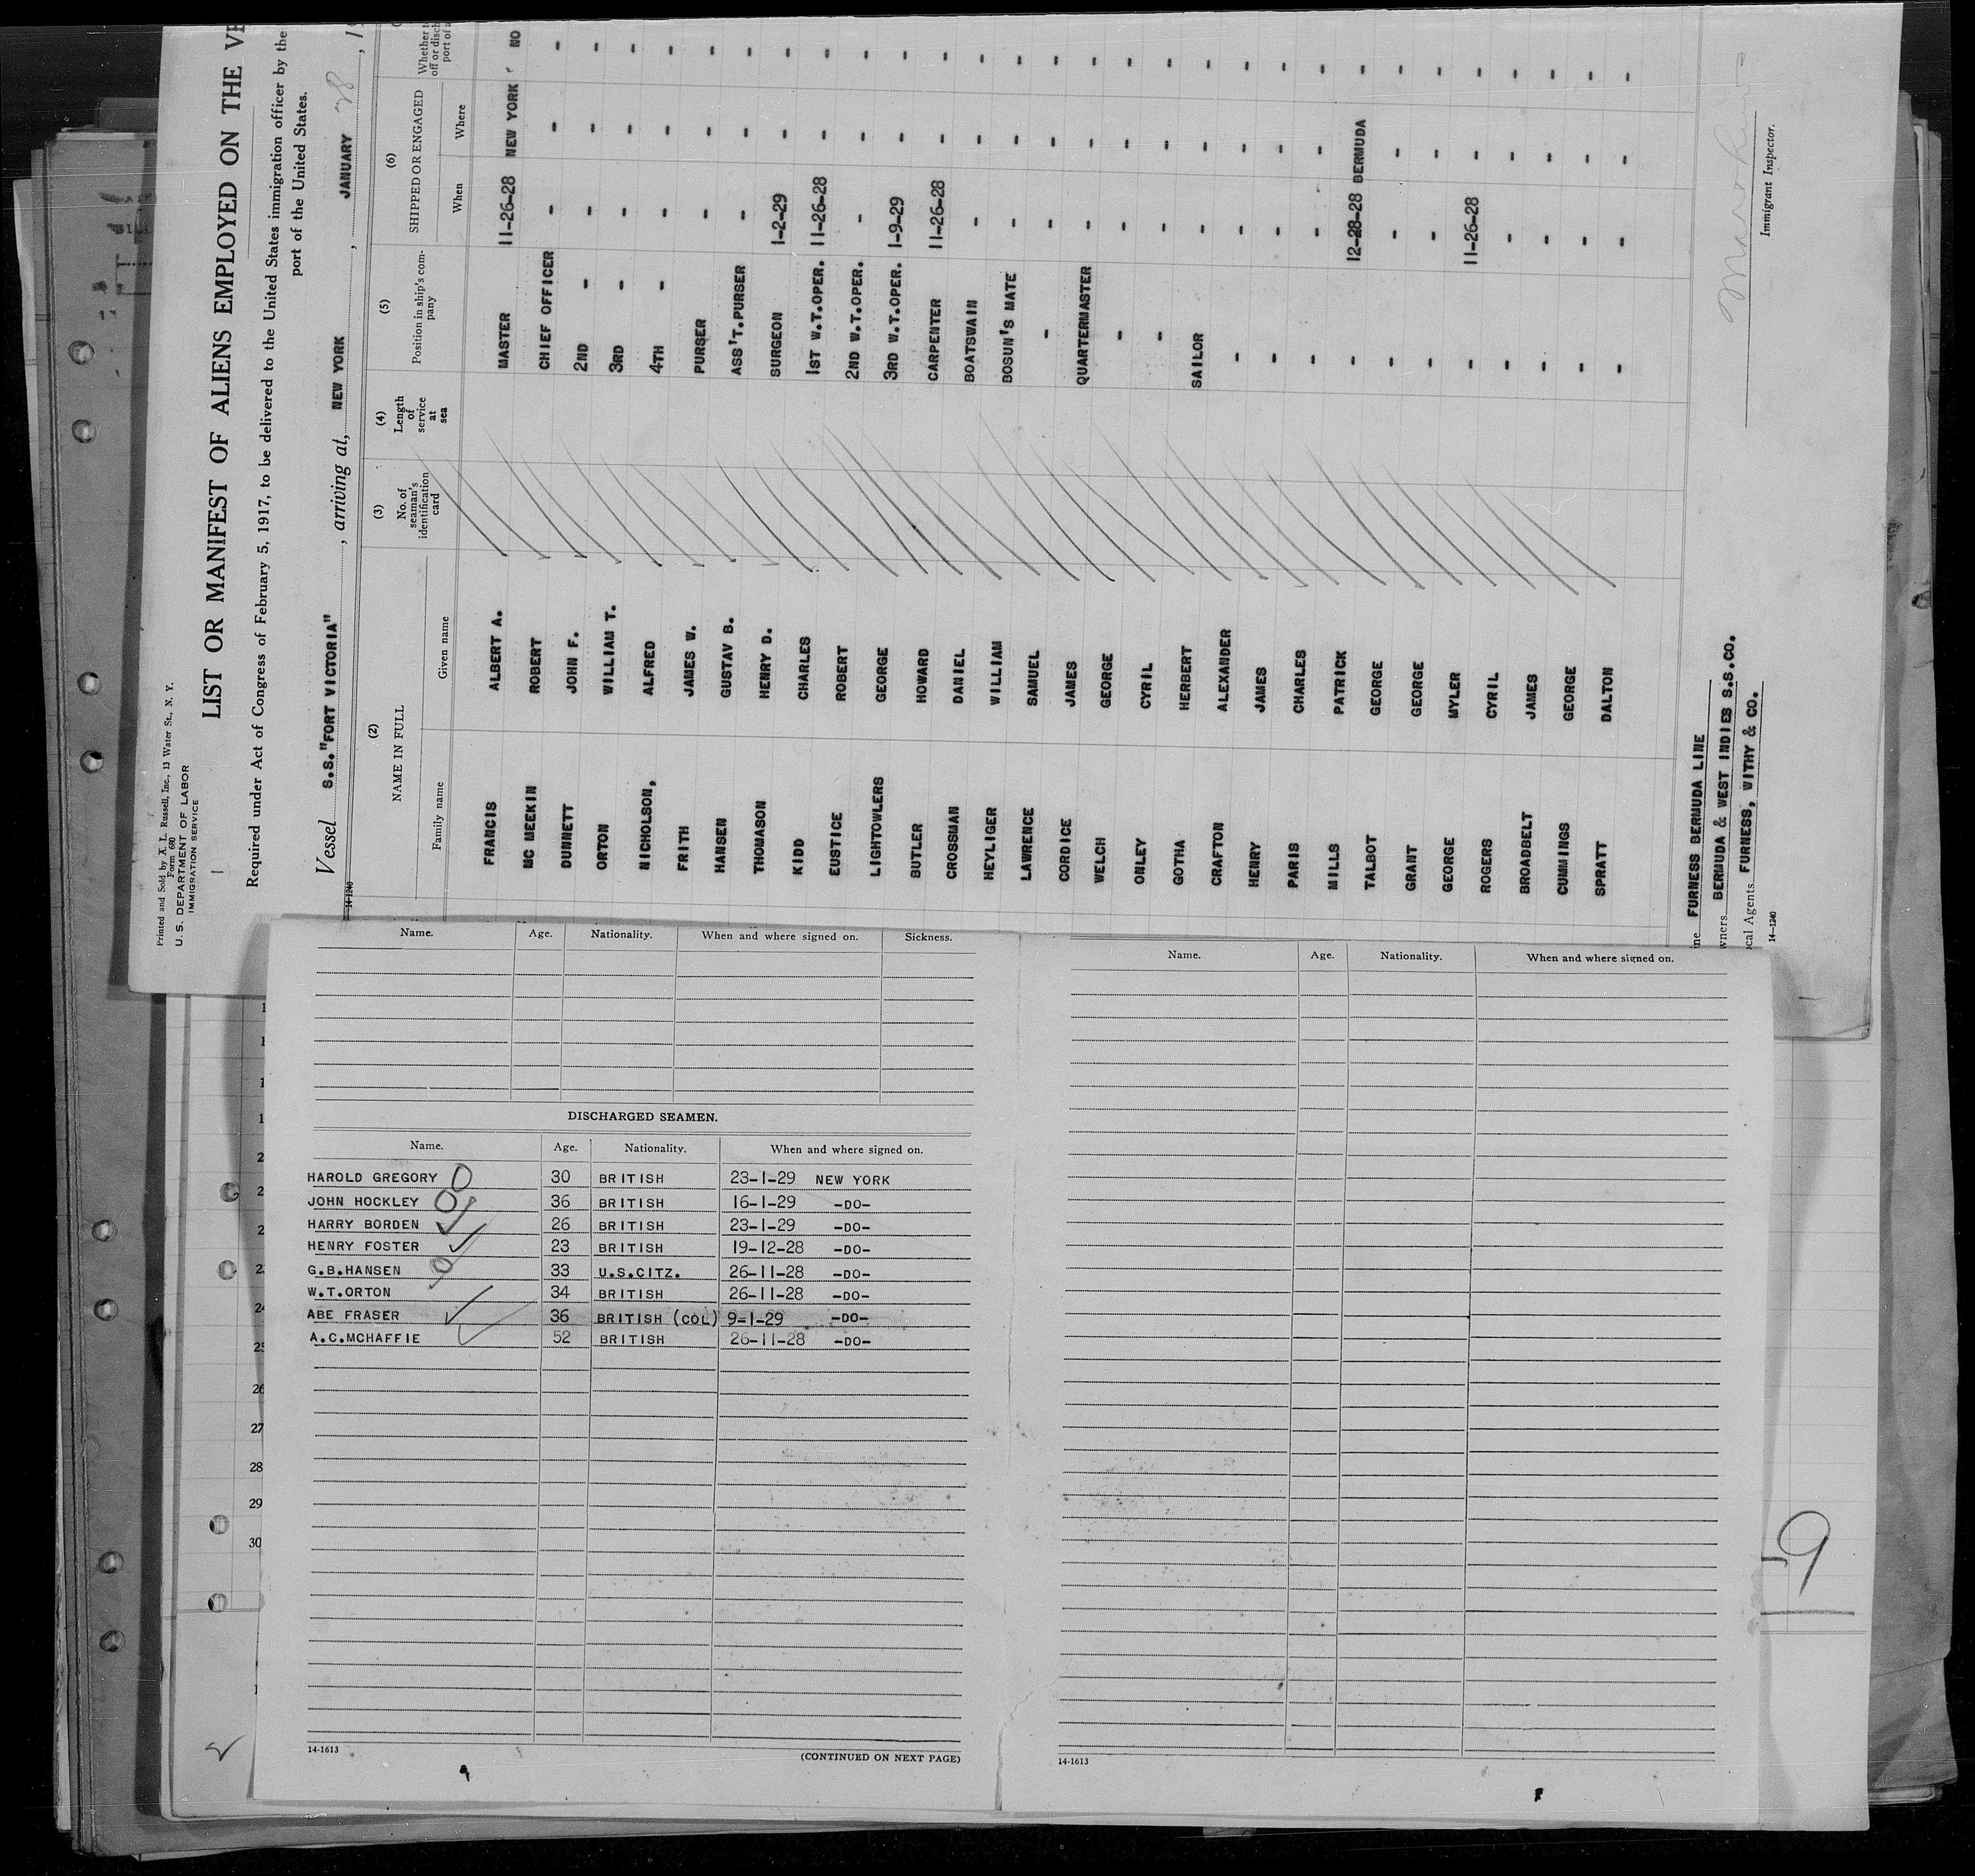 Printed and Sold by A. L. Russell, Inc., 13 Water St., N. Y.
Form 680
U. S. DEPARTMENT OF LABOR
IMMIGRATION SERVICE
LIST OR MANIFEST OF ALIENS EMPLOYED ON THE
Required under Act of Congress of February 5, 1917, to be delivered to the United States immigration officer by the
port of the United States.
Vessel S.S."FORT VICTORIA" , arriving at, NEW YORK , JANUARY 28 , 1
14-1240
(2) (3) (4) (5) (6)
NAME IN FULL No. of seaman's identification card Length of service at sea Position in ship's company SHIPPED OR ENGAGED Whether to
Family name Given name When Where
FRANCIS ALBERT A. MASTER 11-26-28 NEW YORK NO
MC MEEKIN ROBERT CHIEF OFFICER - - -
DUNNETT JOHN F. 2ND - - - -
ORTON WILLIAM T. 3RD - - - -
NICHOLSON, ALFRED 4TH - - - -
FRITH JAMES W. PURSER - - -
HANSEN GUSTAV B. ASS'T.PURSER - - -
THOMASON HENRY D. SURGEON 1-2-29 - -
KIDD CHARLES 1ST W.T.OPER. 11-26-28 - -
EUSTICE ROBERT 2ND W.T.OPER. - - -
LIGHTOWLERS GEORGE 3RD W.T.OPER. 1-9-29 - -
BUTLER HOWARD CARPENTER 11-26-28 - -
CROSSMAN DANIEL BOATSWAIN - - -
HEYLIGER WILLIAM BOSUN'S MATE - - -
LAWRENCE SAMUEL - - - -
CORDICE JAMES QUARTERMASTER - - -
WELCH GEORGE - - - -
ONLEY CYRIL - - - -
GOTHA HERBERT SAILOR - - -
CRAFTON ALEXANDER - - - -
HENRY JAMES - - - -
PARIS CHARLES - - - -
MILLS PATRICK - 12-28-28 BERMUDA -
TALBOT GEORGE - - - -
GRANT GEORGE - - - -
GEORGE MYLER - 11-26-28 - -
ROGERS CYRIL - - - -
BROADBELT JAMES - - - -
CUMMINGS GEORGE - - - -
SPRATT DALTON - - - -
FURNESS BERMUDA LINE
BERMUDA & WEST INDIES S.S.CO.
FURNESS, WITHY & CO.
14-1240
Immigrant Inspector.
Name. Age. Nationality. When and where signed on. Sickness.
DISCHARGED SEAMEN.
Name. Age. Nationality. When and where signed on.
HAROLD GREGORY 30 BRITISH 23-1-29 NEW YORK
JOHN HOCKLEY 36 BRITISH 16-1-29 -DO-
HARRY BORDEN 26 BRITISH 23-1-29 -DO-
HENRY FOSTER 23 BRITISH 19-12-28 -DO-
G.B.HANSEN 33 U.S.CITZ. 26-11-28 -DO-
W.T.ORTON 34 BRITISH 26-11-28 -DO-
ABE FRASER 36 BRITISH (COL) 9-1-29 -DO-
A.C.MCHAFFIE 52 BRITISH 26-11-28 -DO-
14-1613
(CONTINUED ON NEXT PAGE)
Name. Age. Nationality. When and where signed on.
14-1613
24
25
26
27
28
29
30
9